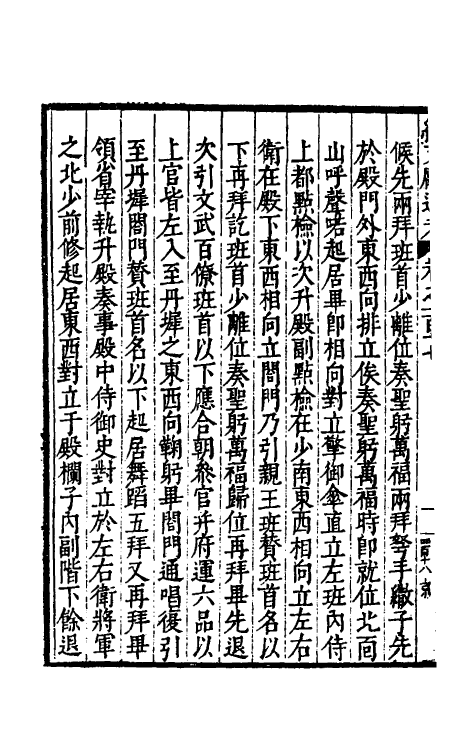 候先兩拜班首少離位奏聖躬萬福兩拜弩手徹子先
於殿門外東西向排立俟奏聖躬萬福時即就位北面
山呼聲喏起居畢即相向對立擎御傘直立左班内侍
上都點檢以次升殿副點檢在少南東西相向立左右
衛在殿下東西相向立閤門乃引親王班贊班首名以
下再拜訖班首少離位奏聖躬萬福歸位再拜畢先退
次引文武百僚班首以下應合朝參官并府運六品以
上官皆左入至丹墀之東西向鞠躬畢閤門通唱復引
至丹墀閤門贊班首名以下起居舞蹈五拜又再拜畢
領省宰執升殿奏事殿中侍御史對立於左右衛將軍
之北少前修起居東西對立于殿欄子内副階下餘退